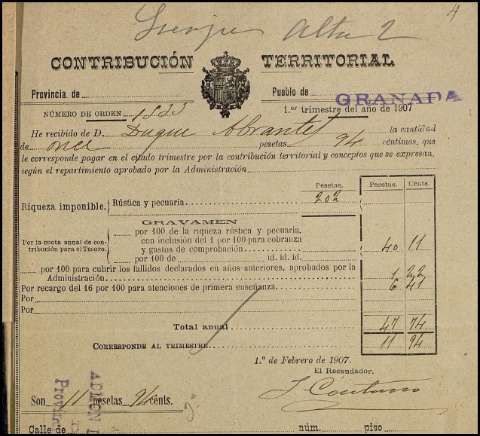 Alta 2
CONTRIBUCIÓN TERRITORIAL
Provincia de Pueblo de GRANADA
NÚMERO DE ORDEN 1.er trimestre del año de 1907
He recibido de D. Duque Abrantes la cantidad
de once pesetas 94 céntimos, que
le corresponde pagar en el citado trimestre por la contribución territorial y conceptos que se expresan,
según el repartimiento aprobado por la Administración.
Pesetas. Pesetas. Cénts.
Riqueza imponible. Rústica y pecuaria 202
GRAVAMEN
Por la cuota anual de contribución para el Tesoro.
por 100 de la riqueza rústica y pecuaria,
con inclusión del 1 por 100 para cobranza
y gastos de comprobación 40 11
por 100 de id. id. id.
por 100 para cubrir los fallidos declarados en años anteriores, aprobados por la
Administración 1 22
Por recargo del 16 por 100 para atenciones de primera enseñanza 6 41
Por
Por
Total anual 47 74
CORRESPONDE AL TRIMESTRE 11 94
1.º de Febrero de 1907.
El Recaudador,
Son 11 pesetas 94 cénts.
Calle de núm. piso